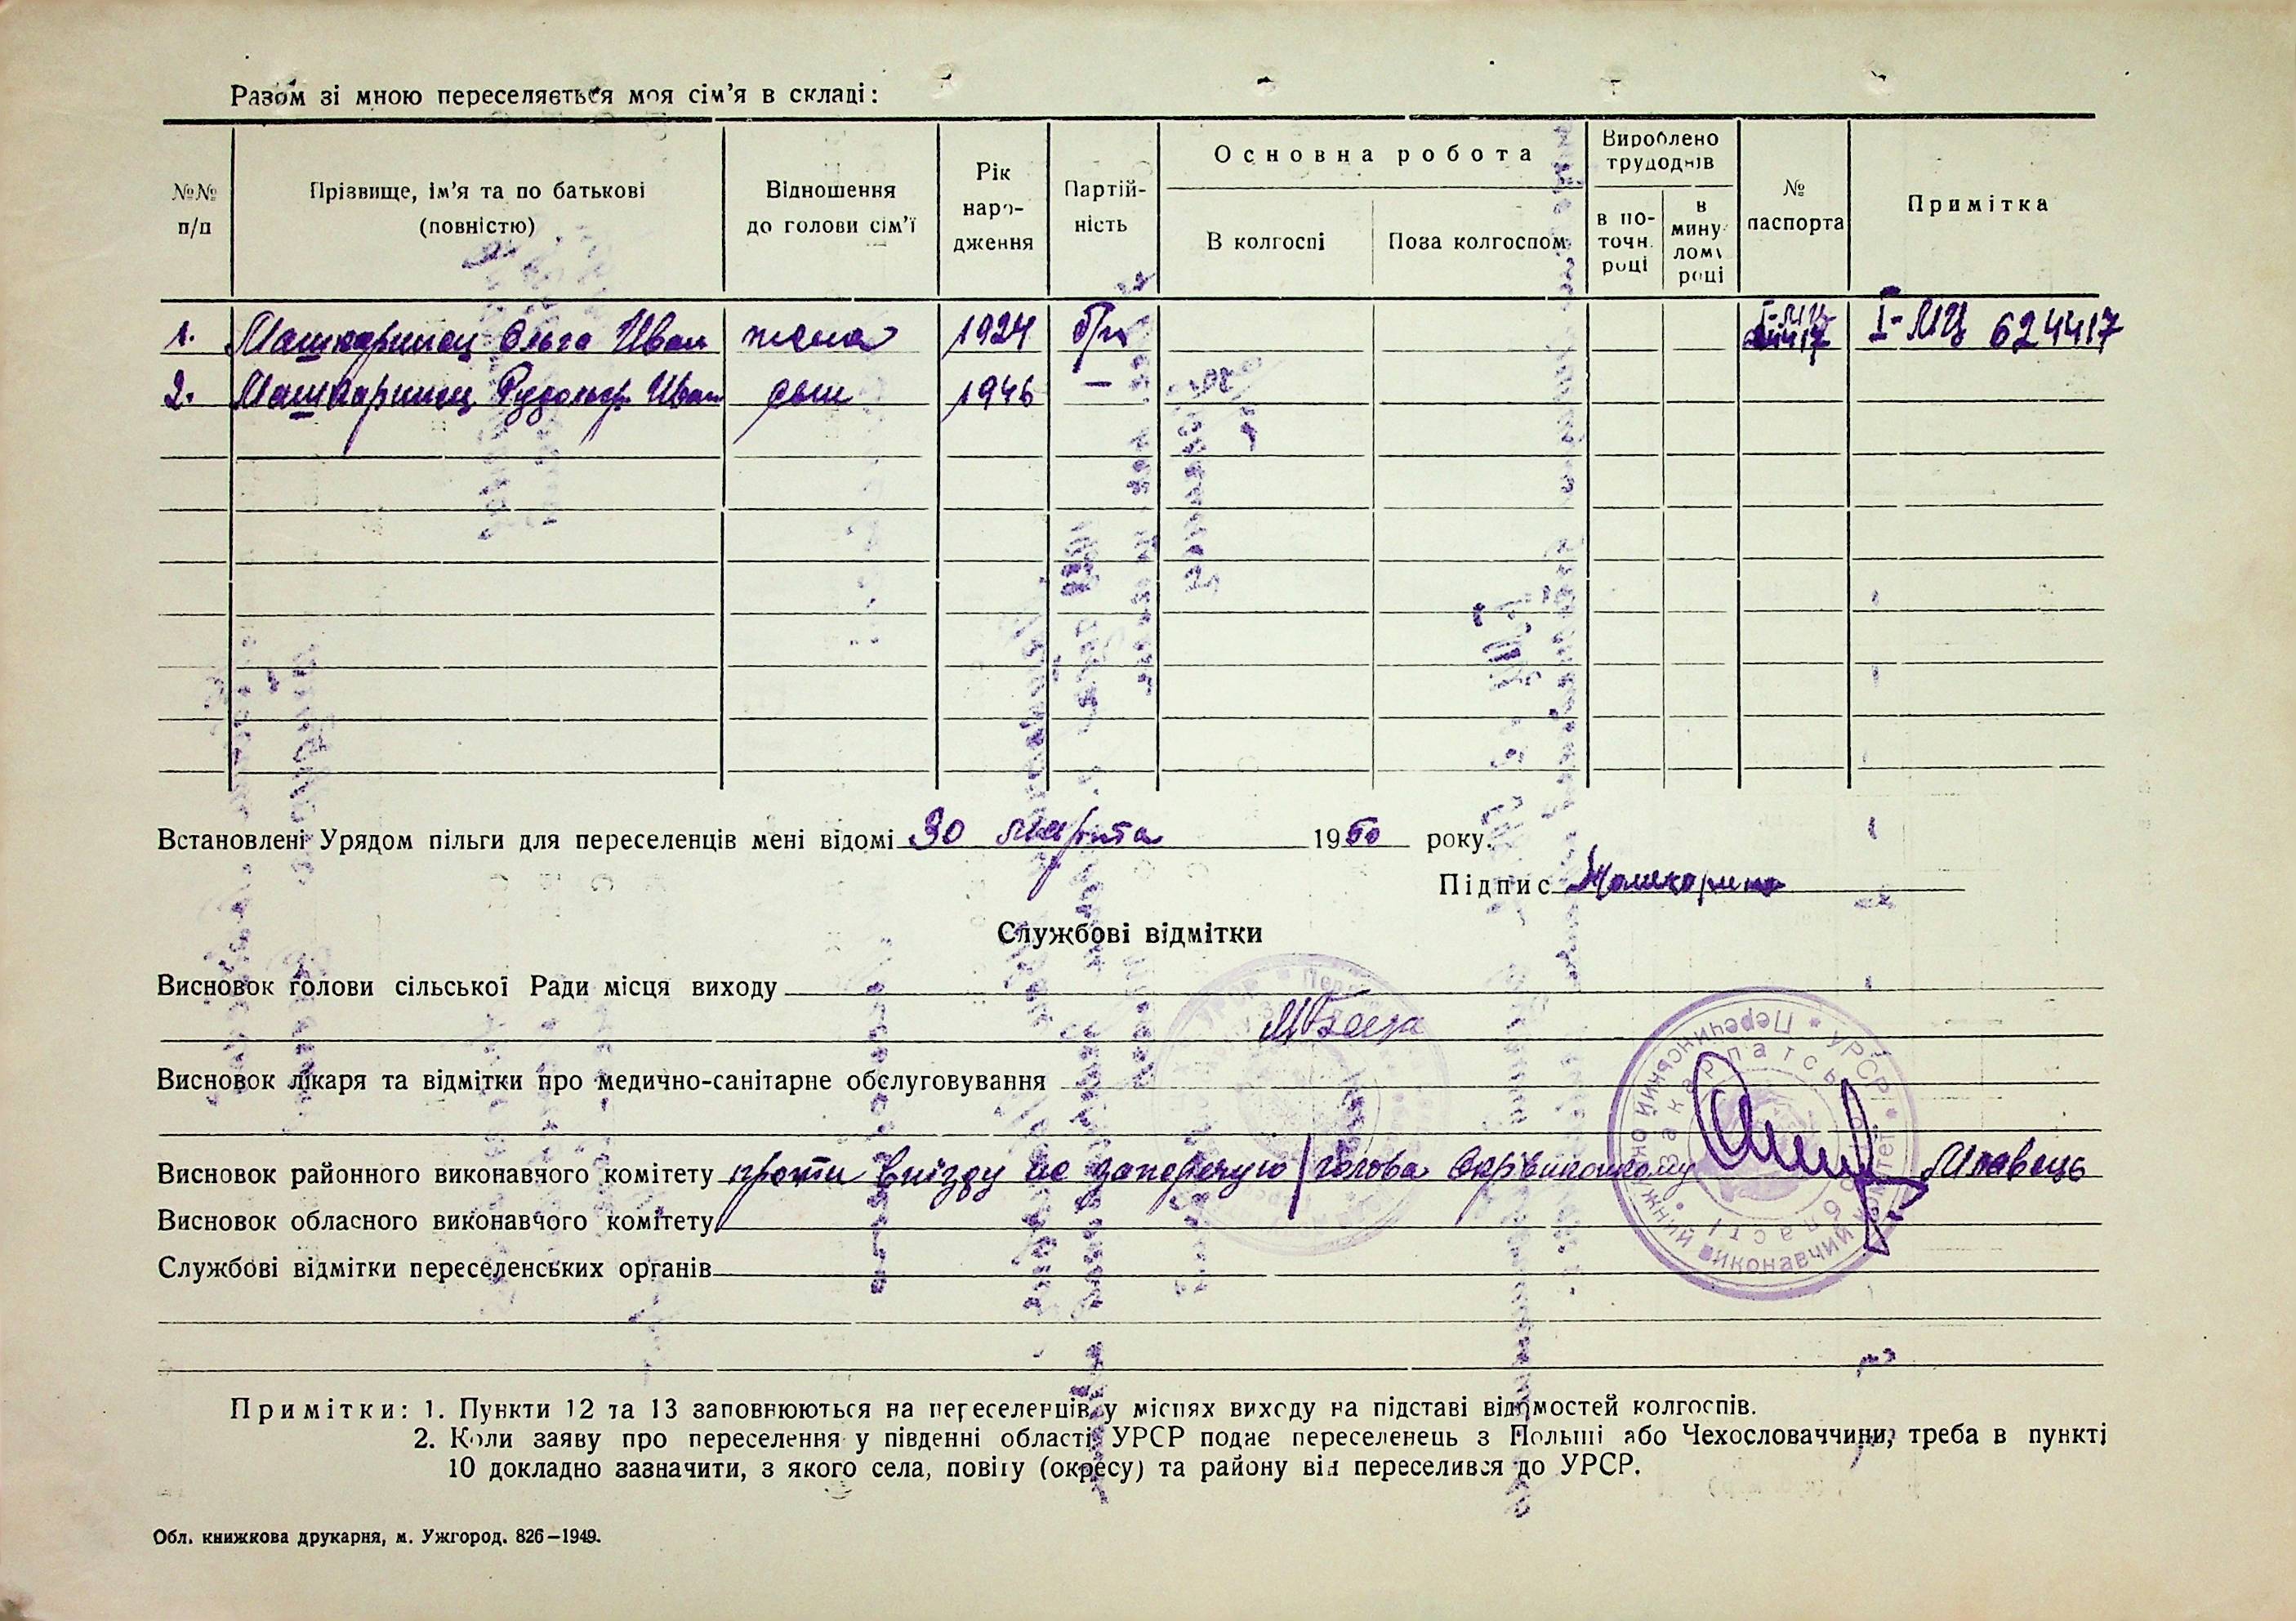 Разом зі мною переселяється моя сім'я в складі:
№№ п/п
Прізвище, ім'я та по батькові (повністю)
Відношення до голови сім'ї
Рік народження
Партійність
Основна робота
В колгоспі
Поза колгоспом
Вироблено трудоднів
в поточн. році
в минулому році
№ паспорта
Примітка
1. Машкаринец Ольга Иван жена 1924 б/п I-МЦ 624417
2. Машкаринец Рудольф Иван сын 1946 —
Встановлені Урядом пільги для переселенців мені відомі 30 марта 1950 року.
Підпис Машкаринец
Службові відмітки
Висновок голови сільської Ради місця виходу
Висновок лікаря та відмітки про медично-санітарне обслуговування
Висновок районного виконавчого комітету проти виїзду не заперечую / голова Окрвиконкому
Висновок обласного виконавчого комітету
Службові відмітки переселенських органів
УРСР • Перечинський • Закарпатської області • Виконавчий комітет
Примітки: 1. Пункти 12 та 13 заповнюються на переселенців у місцях виходу на підставі відомостей колгоспів.
2. Коли заяву про переселення у південні області УРСР подає переселенець з Польші або Чехословаччини, треба в пункті
10 докладно зазначити, з якого села, повіту (окресу) та району він переселився до УРСР.
Обл. книжкова друкарня, м. Ужгород. 826—1949.